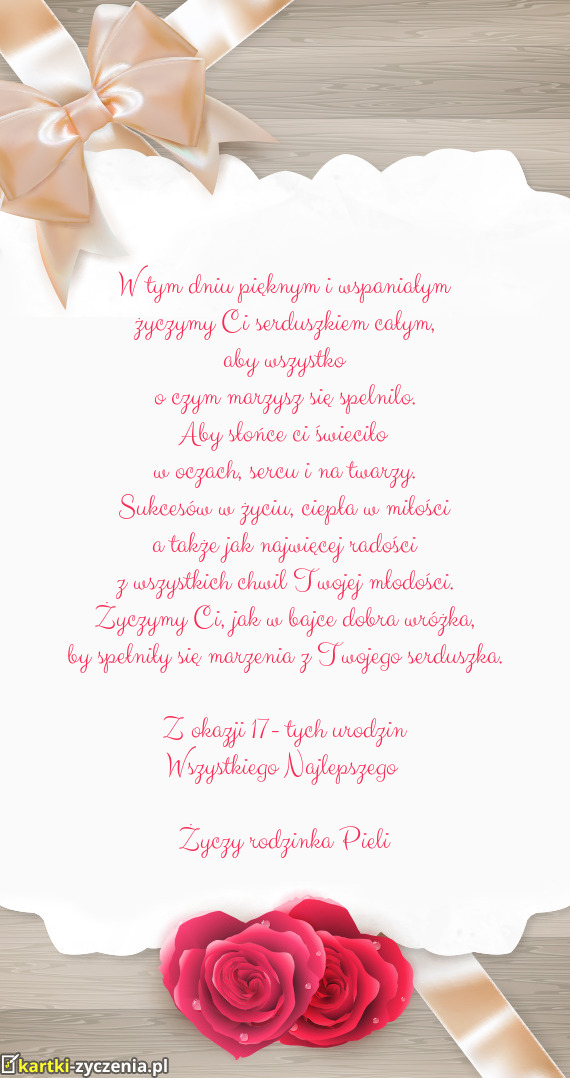 W tym dniu pięknym i wspaniałym
życzymy Ci serduszkiem całym,
aby wszystko
o czym marzysz się spełniło.
Aby słońce ci świeciło
w oczach, sercu i na twarzy.
Sukcesów w życiu, ciepła w miłości
a także jak najwięcej radości
z wszystkich chwil Twojej młodości.
Życzymy Ci, jak w bajce dobra wróżka,
by spełniły się marzenia z Twojego serduszka.
Z okazji 17-tych urodzin
Wszystkiego Najlepszego
Życzy rodzinka Pieli
kartki-zyczenia.pl